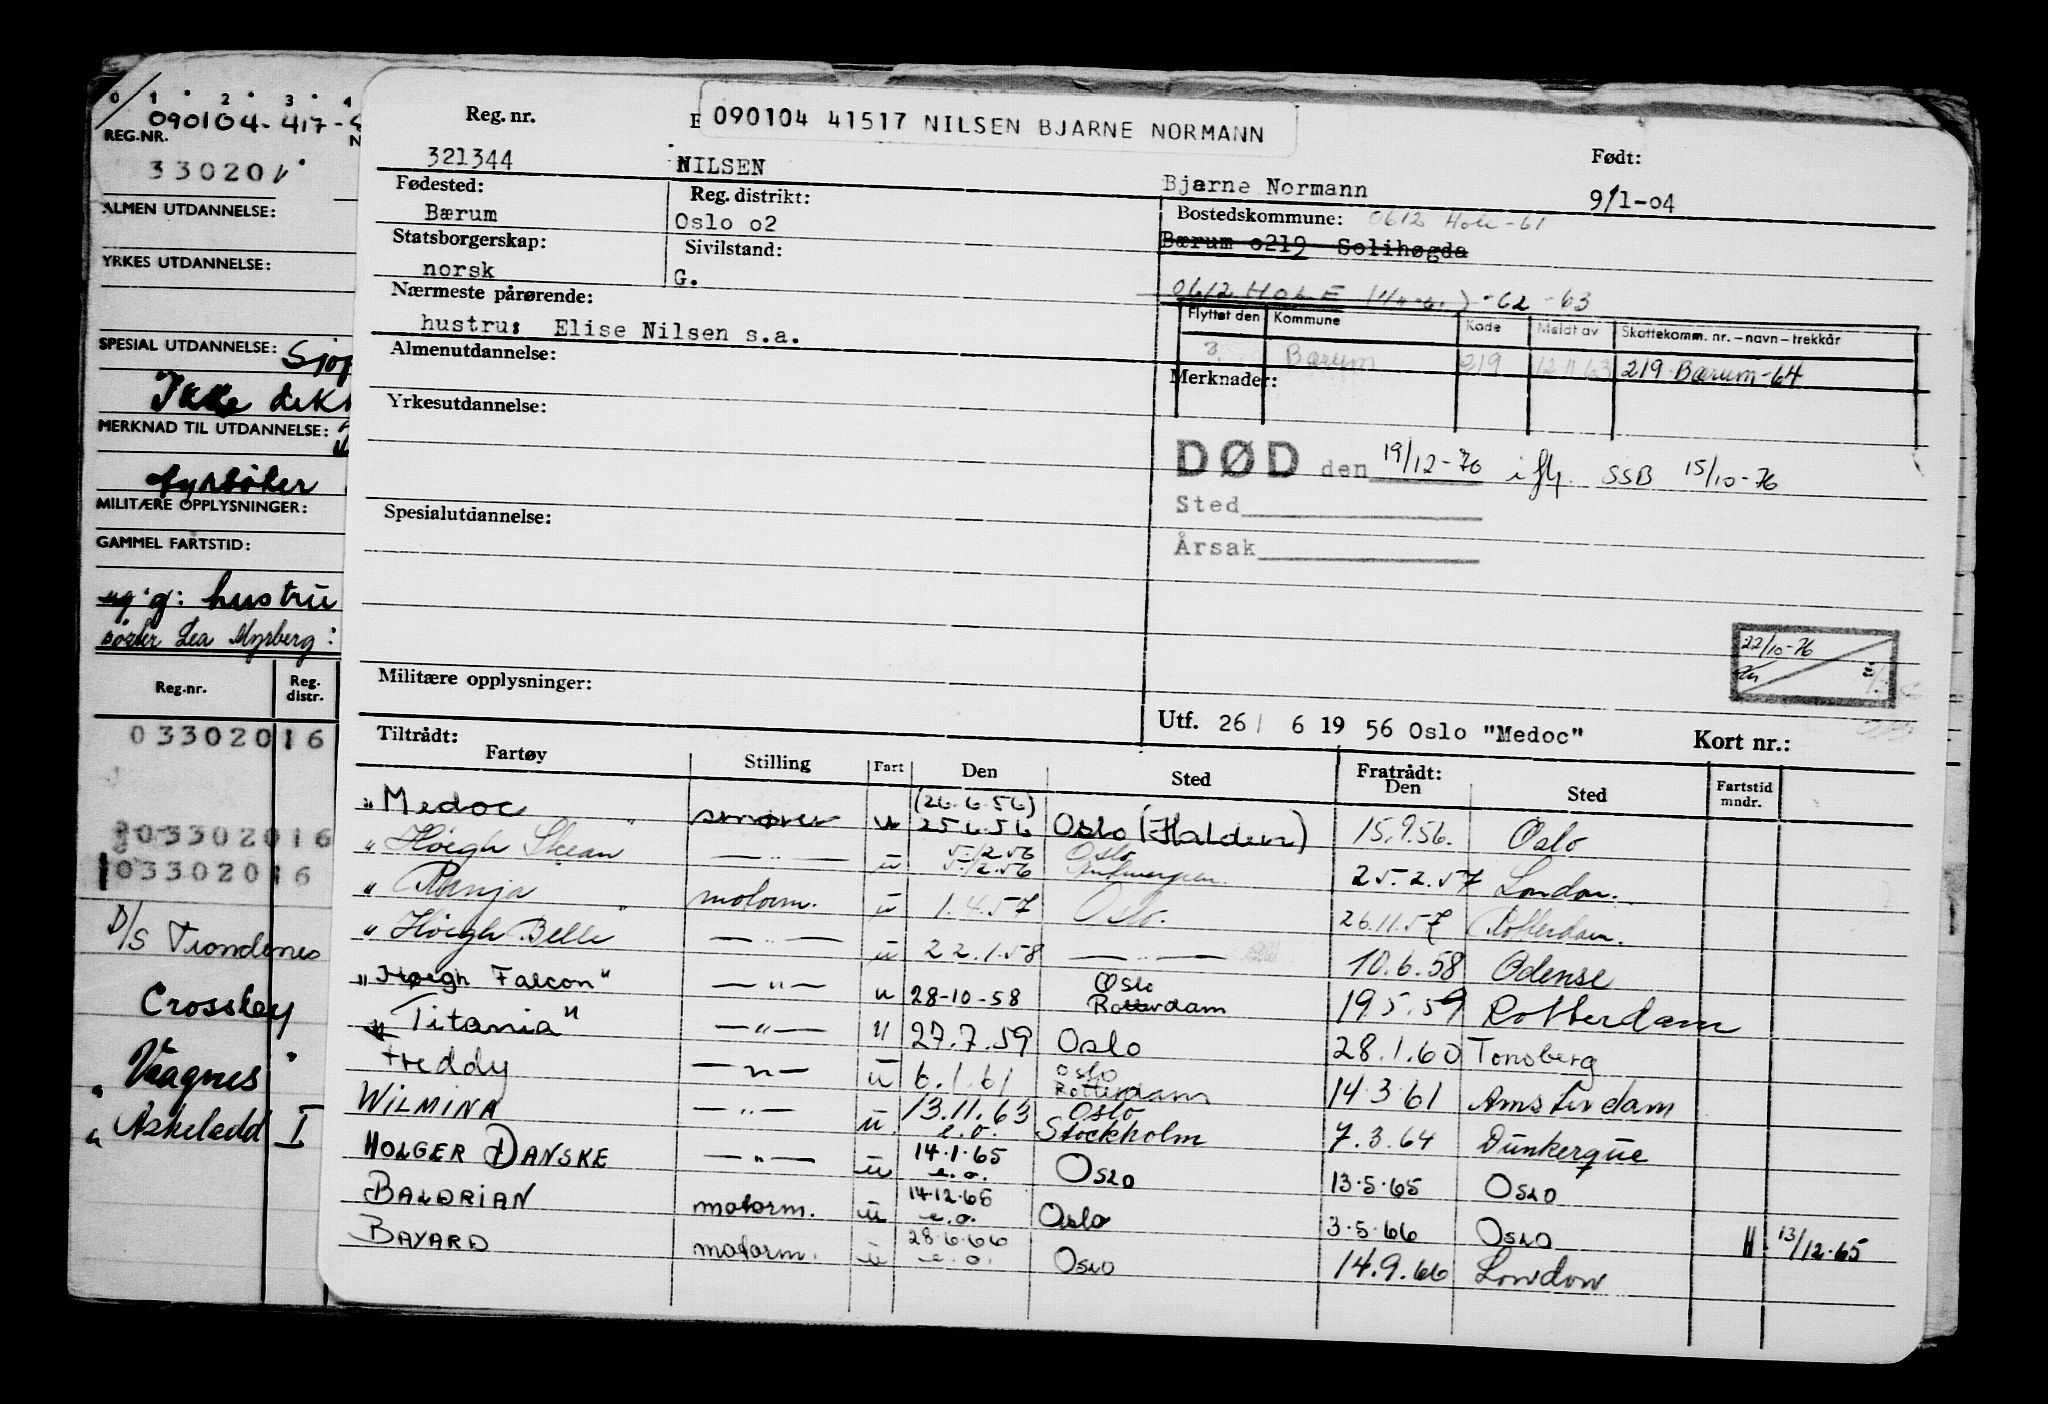 0 1 2 3 4
090104-417-
REG.NR.
330201
ALMEN UTDANNELSE:
YRKES UTDANNELSE:
SPESIAL UTDANNELSE:
Ikke
MERKNAD TIL UTDANNELSE:
fyrbøter
MILITÆRE OPPLYSNINGER:
GAMMEL FARTSTID:
ug. g: hustru
søster Lea Myrberg:
Reg.nr. Reg. distr.
03302016
03302016
03302016
D/S Trondenes
Crossley
"Vaagnes"
" Askeladd I
090104 41517 NILSEN BJARNE NORMANN
Reg. nr. E Født:
321344 NILSEN Bjarne Normann 9/1-04
Fødested: Reg. distrikt: Bostedskommune: 0612 Hole-61
Bærum Oslo o2 Bærum o219 Solihøgda
Statsborgerskap: Sivilstand:
norsk G. 0612 HOLE -62 -63
Nærmeste pårørende: Flyttet den Kommune Kode Meldt av Skattekomm. nr. – navn – trekkår
hustru: Elise Nilsen s.a. 3. Bærum 219 12 11 63 219 Bærum-64
Almenutdannelse: Merknader:
Yrkesutdannelse:
DØD den 19/12-70 ifly. SSB 15/10-76
Sted
Spesialutdannelse:
Årsak
22/10-76
Militære opplysninger:
Utf. 26/ 6 19 56 Oslo "Medoc" Kort nr.:
Tiltrådt: Fratrådt:
Fartøy Stilling Fart Den Sted Den Sted Fartstid mndr.
"Medoc" smører u (26.6.56) 25.6.56 Oslo (Halden) 15.9.56. Oslo
"Höegh — " — u 5.12.56 5.12.56 Oslo 25.2.57 London.
"Ranja motorm. u 1.4.57 Oslo. 26.11.57 Rotterdam.
"Höegh Belle" — " — u 22.1.58 — " — 10.6.58 Odense
"Høegh Falcon" — " — u 28-10-58 Oslo Rotterdam 19.5.59 Rotterdam
"Titania" — " — u 27.7.59 Oslo 28.1.60 Tønsberg
Freddy — " — u 6.1.61 Oslo Rotterdam 14.3.61 Amsterdam
WILMINA — " — u. 13.11.63 e.o. Oslo Stockholm 7.3.64 Dunkerque
HOLGER DANSKE — " — u 14.1.65 e.o. Oslo 13.5.65 Oslo
BALDRIAN motorm. u 14.12.65 e.o. Oslo 3.5.66 Oslo H 13/12.65
BAYARD motorm. u 28.6.66 e.o. Oslo 14.9.66 London